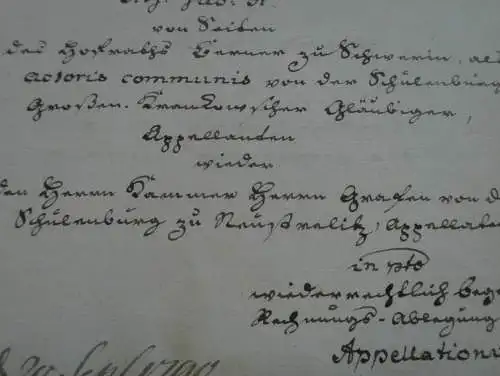 von Seiten
des Hofraths Berner zu Schwerin, als
actoris communis von der Schulenburg
Großen-Krankowscher Gläubiger,
Appellanten
wieder
den Herrn Kammer Herrn Grafen von d
Schulenburg zu Neustrelitz, Appellaten
in pto
wiederrechtlich bege
Rechnungs-Ablegung
Appellations